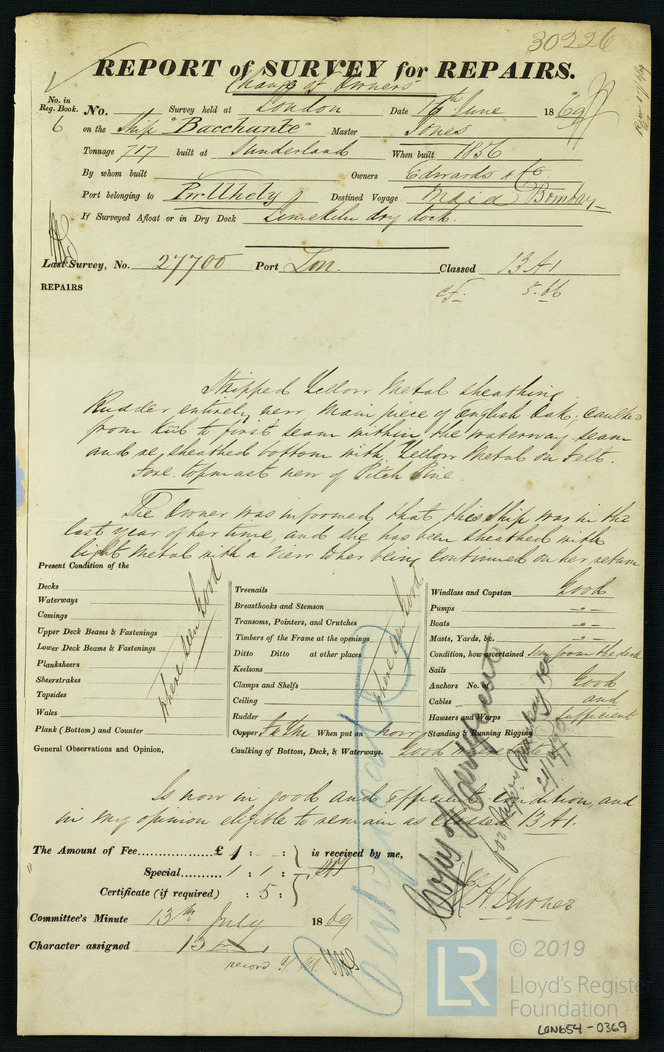 30226
REPORT of SURVEY for REPAIRS.
Change of Owners
No. in Reg. Book.
6
No. Survey held at London Date 16th June 1869
on the Ship "Bacchante" Master Jones
Tonnage 717 built at Sunderland When built 1856
By whom built Owners Edwards & Co.
Port belonging to Destined Voyage Bombay
If Surveyed Afloat or in Dry Dock Limekiln dry dock.
Last Survey, No. 27700 Port Lon. Classed 13 A1
5.66
REPAIRS
Stripped Yellow Metal sheathing
Rudder entirely new main piece of English Oak. Caulked
from keel to first seam within the waterway seam
and re sheathed bottom with Yellow Metal on Felt.
Fore topmast new of Pitch Pine.
The Owner was informed that this Ship was in the
last year of her time, and she has been sheathed with
light metal with a view to her being continued on her return
Present Condition of the
Decks
Waterways
Comings
Upper Deck Beams & Fastenings
Lower Deck Beams & Fastenings
Planksheers
Sheerstrakes
Topsides
Wales
Plank (Bottom) and Counter
where seen Good
Treenails
Breasthooks and Stemson
Transoms, Pointers, and Crutches
Timbers of the Frame at the openings
Ditto Ditto at other places
Keelsons
Clamps and Shelfs
Ceiling
Rudder
Copper When put on now
where seen Good
Windlass and Capstan Good
Pumps -"-
Boats -"-
Masts, Yards, &c. -"-
Condition, how ascertained from the deck
Sails
Anchors No. of Good
Cables and
Hawsers and Warps Sufficient
Standing & Running Rigging
General Observations and Opinion, Caulking of Bottom, Deck, & Waterways. Good
Is now in good and efficient condition, and
in my opinion eligible to remain as Classed 13 A1.
The Amount of Fee £ 1 : - : - is received by me,
Special 1 : 1 :
Certificate (if required) : 5 :
Committee's Minute 13th July 1869
Character assigned 13 A1
record Y. M.
Copy of Certificate
© 2019
LR
Lloyd's Register
Foundation
LON654-0369